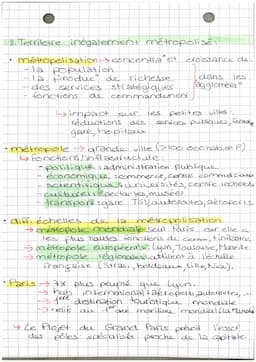 I. Territoire inégalement métropolisé :
• métropolisation → concentra° et croissance de :
- la population
- la produc° de richesse
- des services stratégiques
- fonctions de commandement
dans les agglomérat°
↳ impact sur les petites villes :
réductions des services publiques,
gare, hopitaux
• métropole → grande ville
↳ fonctions/infrastructure :
- politique : administration publique
- économique : commerce, centre commerciaux
- scientifique : universités, centre recherche
- culturel :
- transport : gare TGV, autoroutes, aéroports
• diff. échelles de la métropolisation
→ métropole mondiale : seul Paris car elle a
les plus hautes fonctions du
→ métropole européenne : Lyon, Toulouse, Marseille
→ métropole régionales : à l'échelle
française (Stras, bordeaux, Lille, Nice).
• Paris → 7x plus peuplé que Lyon.
→ hub international : aéroport, autoroutes, ...
→ 1ère destination touristique mondiale
→ relié au 1er axe maritime mondial
↳ Le Projet du Grand Paris prévoit l'essor
des pôles spécialisés proche de la capitale.